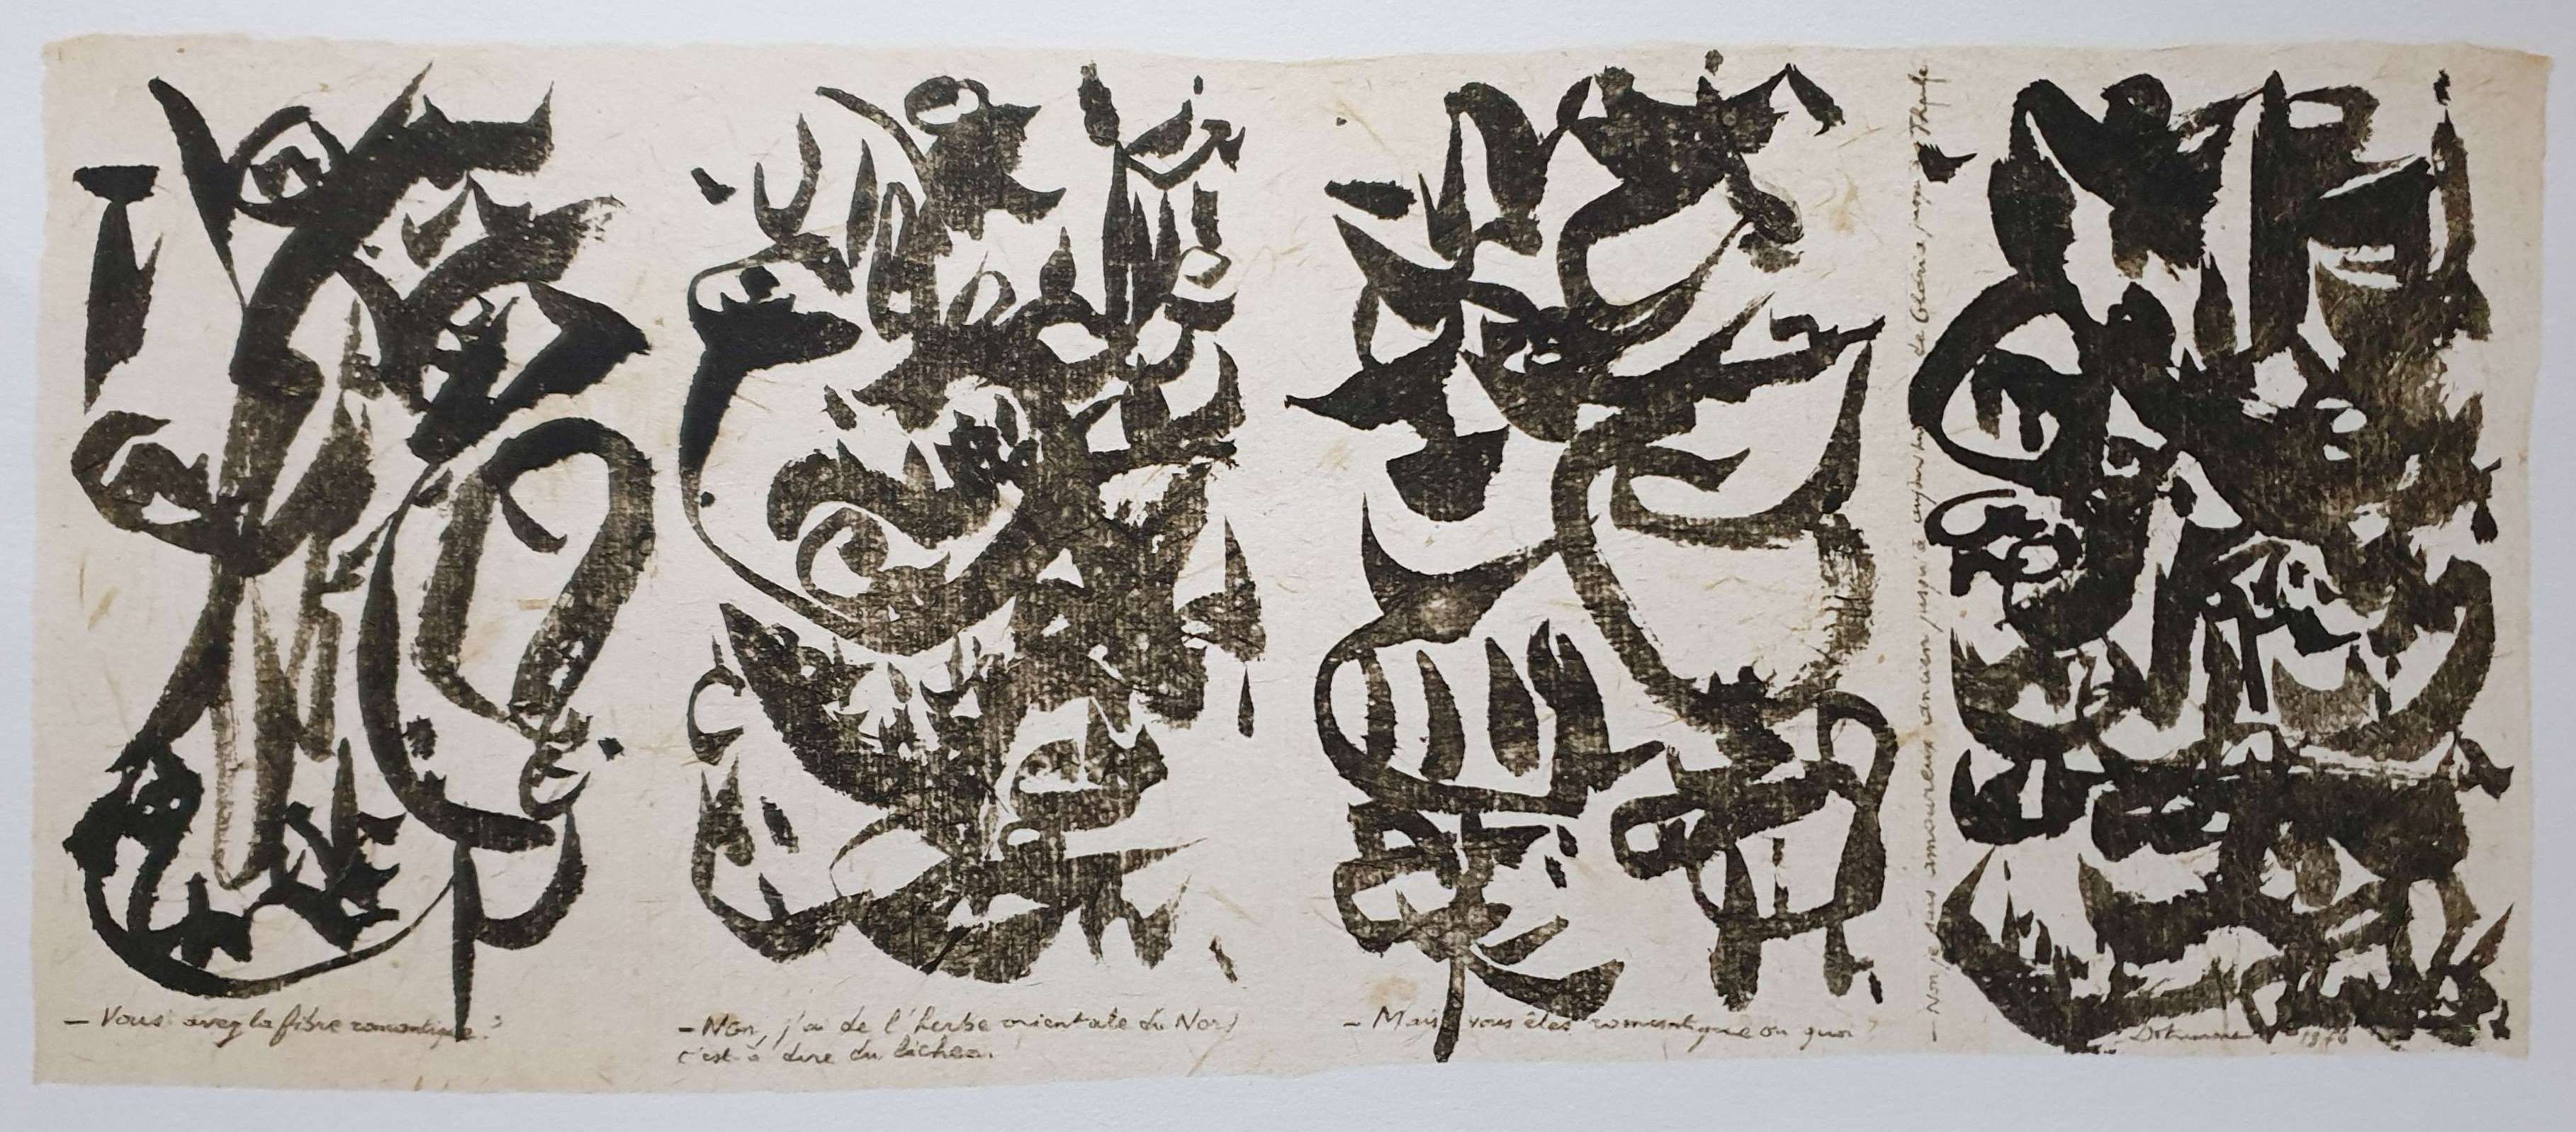 – Vous avez la fibre romantique ?
– Non, j'ai de l'herbe orientale du Nord
c'est à dire du lichen.
– Mais vous êtes romantique ou quoi ?
– Non je suis amoureux ancien jusqu'à aujourd'hui de Gloria
Dotremont 1976